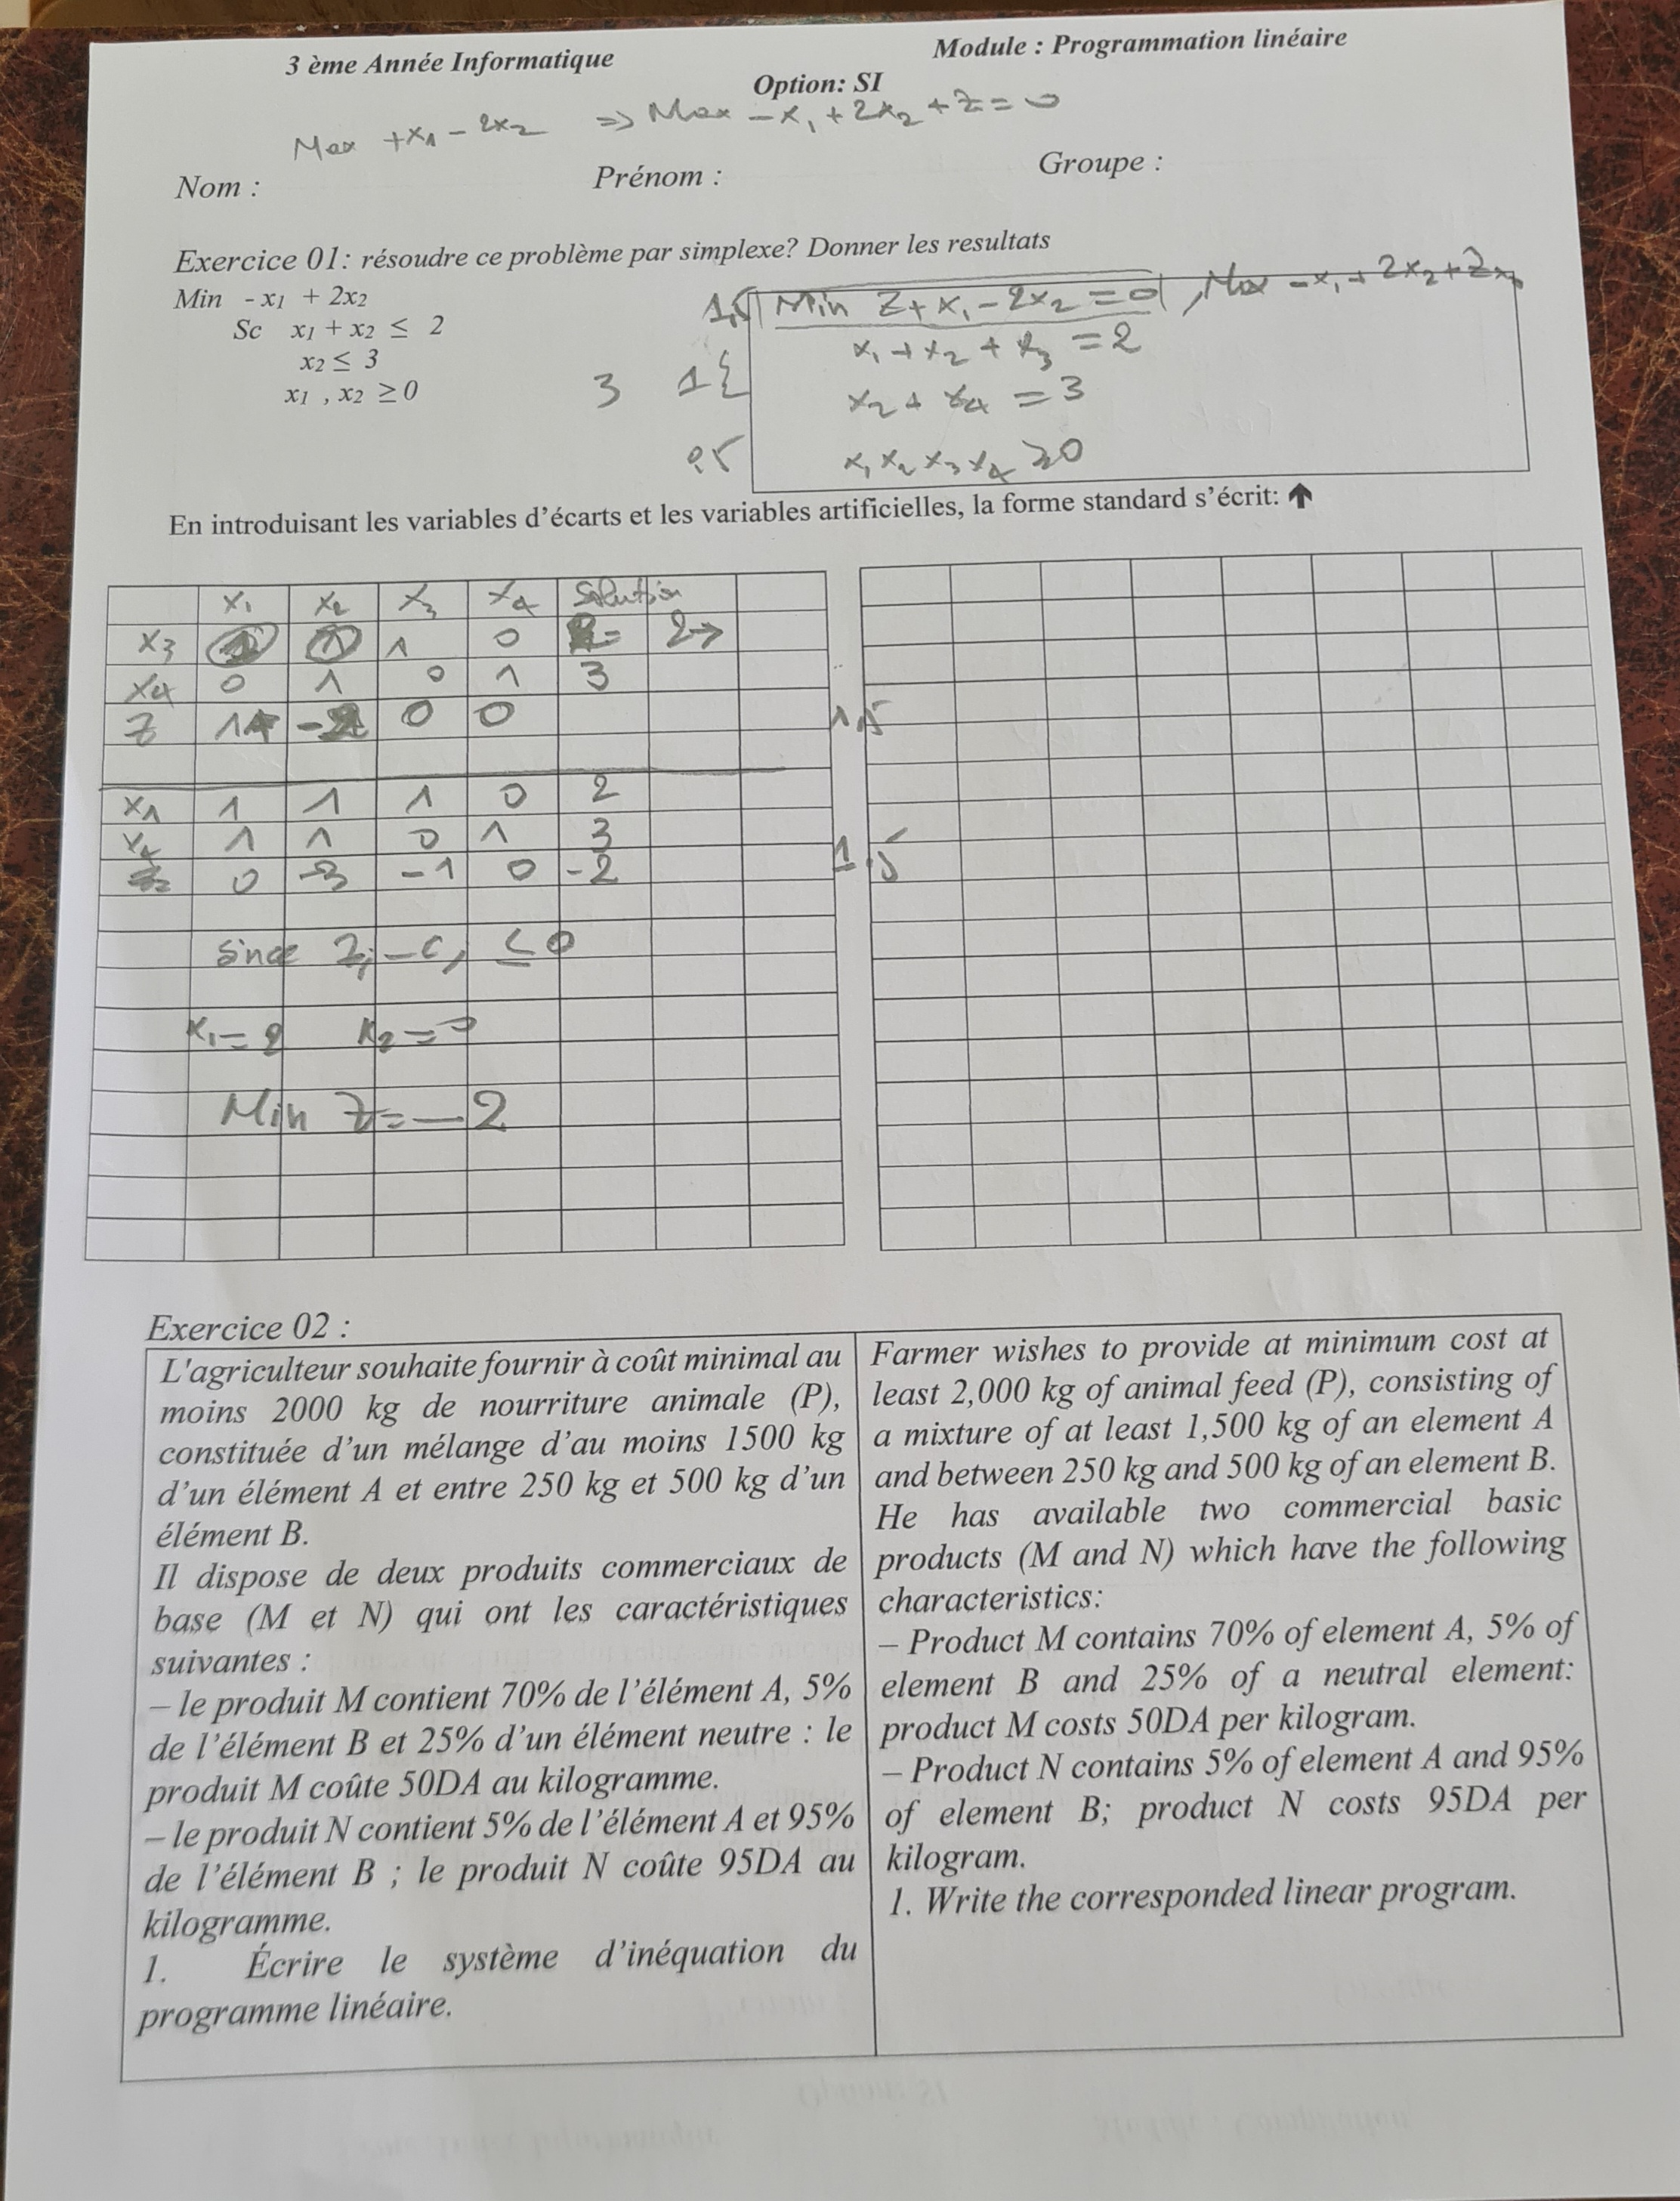 3 ème Année Informatique
Module : Programmation linéaire
Option: SI
Max +x1 - 2x2 => Max -x1 + 2x2 + Z = 0
Nom :
Prénom :
Groupe :
Exercice 01: résoudre ce problème par simplexe? Donner les resultats
Min - x1 + 2x2
Sc x1 + x2 ≤ 2
x2 ≤ 3
x1 , x2 ≥0
1,5 Min Z + x1 - 2x2 = 0 , Max -x1 + 2x2 + Z
x1 + x2 + x3 = 2
3 1{
x2 + x4 = 3
0.5 x1 x2 x3 x4 ≥0
En introduisant les variables d'écarts et les variables artificielles, la forme standard s'écrit: ↑
x1 x2 x3 x4 Solution
x3 1 1 1 0 2→
x4 0 1 0 1 3
Z 1 -2 0 0
1,5
x1 1 1 1 0 2
x4 1 1 0 1 3
0 -3 -1 0 -2
1.5
Since Zj - Cj ≤ 0
x1 = 2 x2 = 0
Min Z = -2
Exercice 02 :
L'agriculteur souhaite fournir à coût minimal au
moins 2000 kg de nourriture animale (P),
constituée d'un mélange d'au moins 1500 kg
d'un élément A et entre 250 kg et 500 kg d'un
élément B.
Il dispose de deux produits commerciaux de
base (M et N) qui ont les caractéristiques
suivantes :
– le produit M contient 70% de l'élément A, 5%
de l'élément B et 25% d'un élément neutre : le
produit M coûte 50DA au kilogramme.
– le produit N contient 5% de l'élément A et 95%
de l'élément B ; le produit N coûte 95DA au
kilogramme.
1. Écrire le système d'inéquation du
programme linéaire.
Farmer wishes to provide at minimum cost at
least 2,000 kg of animal feed (P), consisting of
a mixture of at least 1,500 kg of an element A
and between 250 kg and 500 kg of an element B.
He has available two commercial basic
products (M and N) which have the following
characteristics:
– Product M contains 70% of element A, 5% of
element B and 25% of a neutral element:
product M costs 50DA per kilogram.
– Product N contains 5% of element A and 95%
of element B; product N costs 95DA per
kilogram.
1. Write the corresponded linear program.